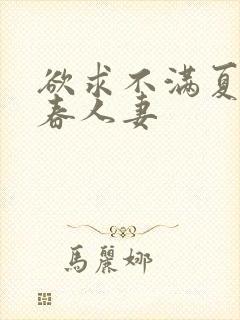 欲求不满夏
春人妻
馬麗娜